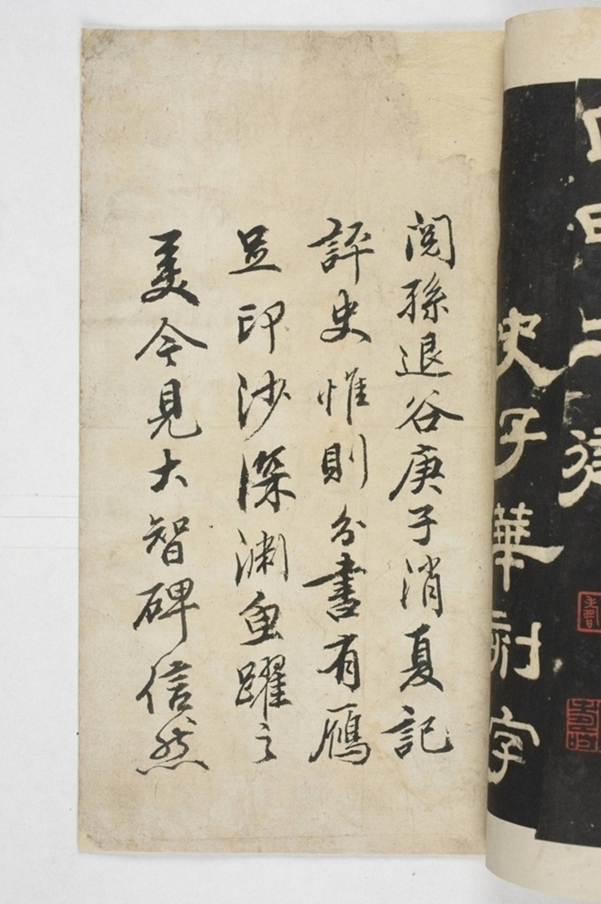 史子華刻字
閱孫退谷庚子消夏記
評史惟則分書有鴈
足印沙深淵魚躍之
美今見大智碑信然